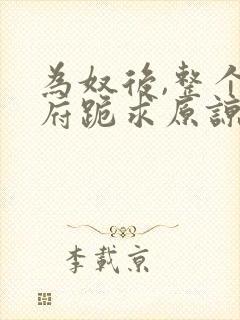 為奴後,整个
府跪求原諒
李載京